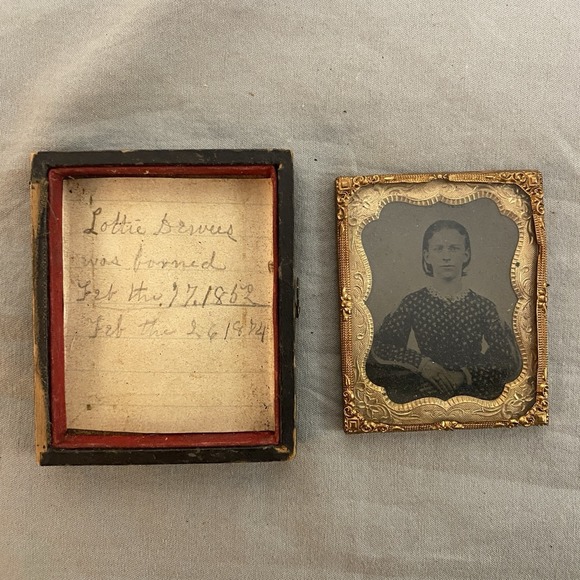 Lottie Dewees
was borned
Feb the 17, 1862
Feb the 26 1874